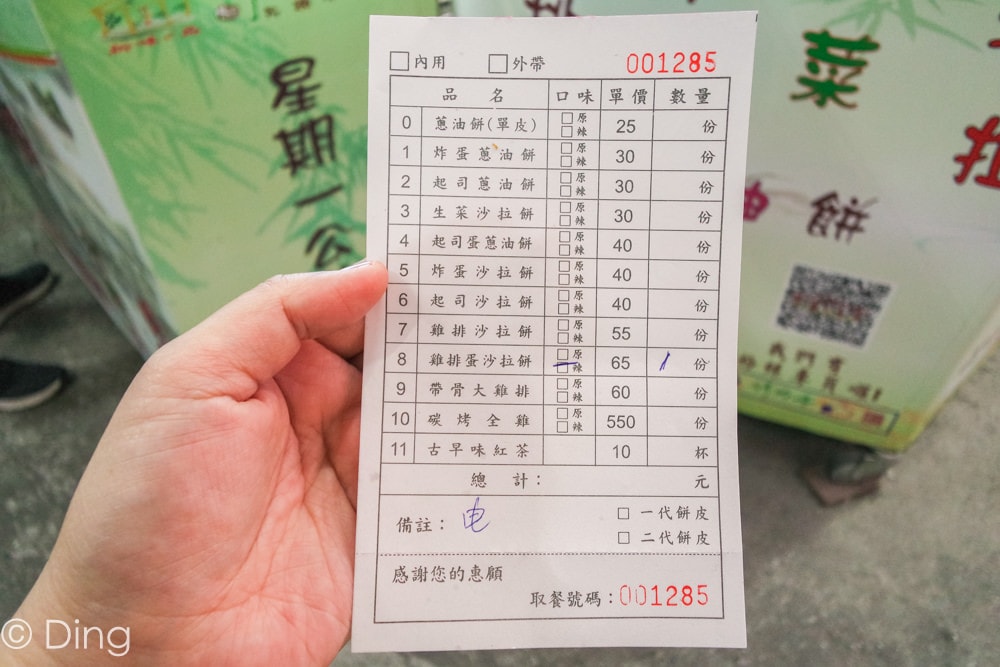 星期一公
菜
餅
我們賣
□內用 □外帶 001285
品名 口味 單價 數量
0 蔥油餅(單皮) □原 □辣 25 份
1 炸蛋蔥油餅 □原 □辣 30 份
2 起司蔥油餅 □原 □辣 30 份
3 生菜沙拉餅 □原 □辣 30 份
4 起司蛋蔥油餅 □原 □辣 40 份
5 炸蛋沙拉餅 □原 □辣 40 份
6 起司沙拉餅 □原 □辣 40 份
7 雞排沙拉餅 □原 □辣 55 份
8 雞排蛋沙拉餅 □原 □辣 65 / 份
9 帶骨大雞排 □原 □辣 60 份
10 碳烤全雞 □原 □辣 550 份
11 古早味紅茶 10 杯
總計： 元
備註： 电 □ 一代餅皮
□ 二代餅皮
感謝您的惠顧
取餐號碼：001285
© Ding